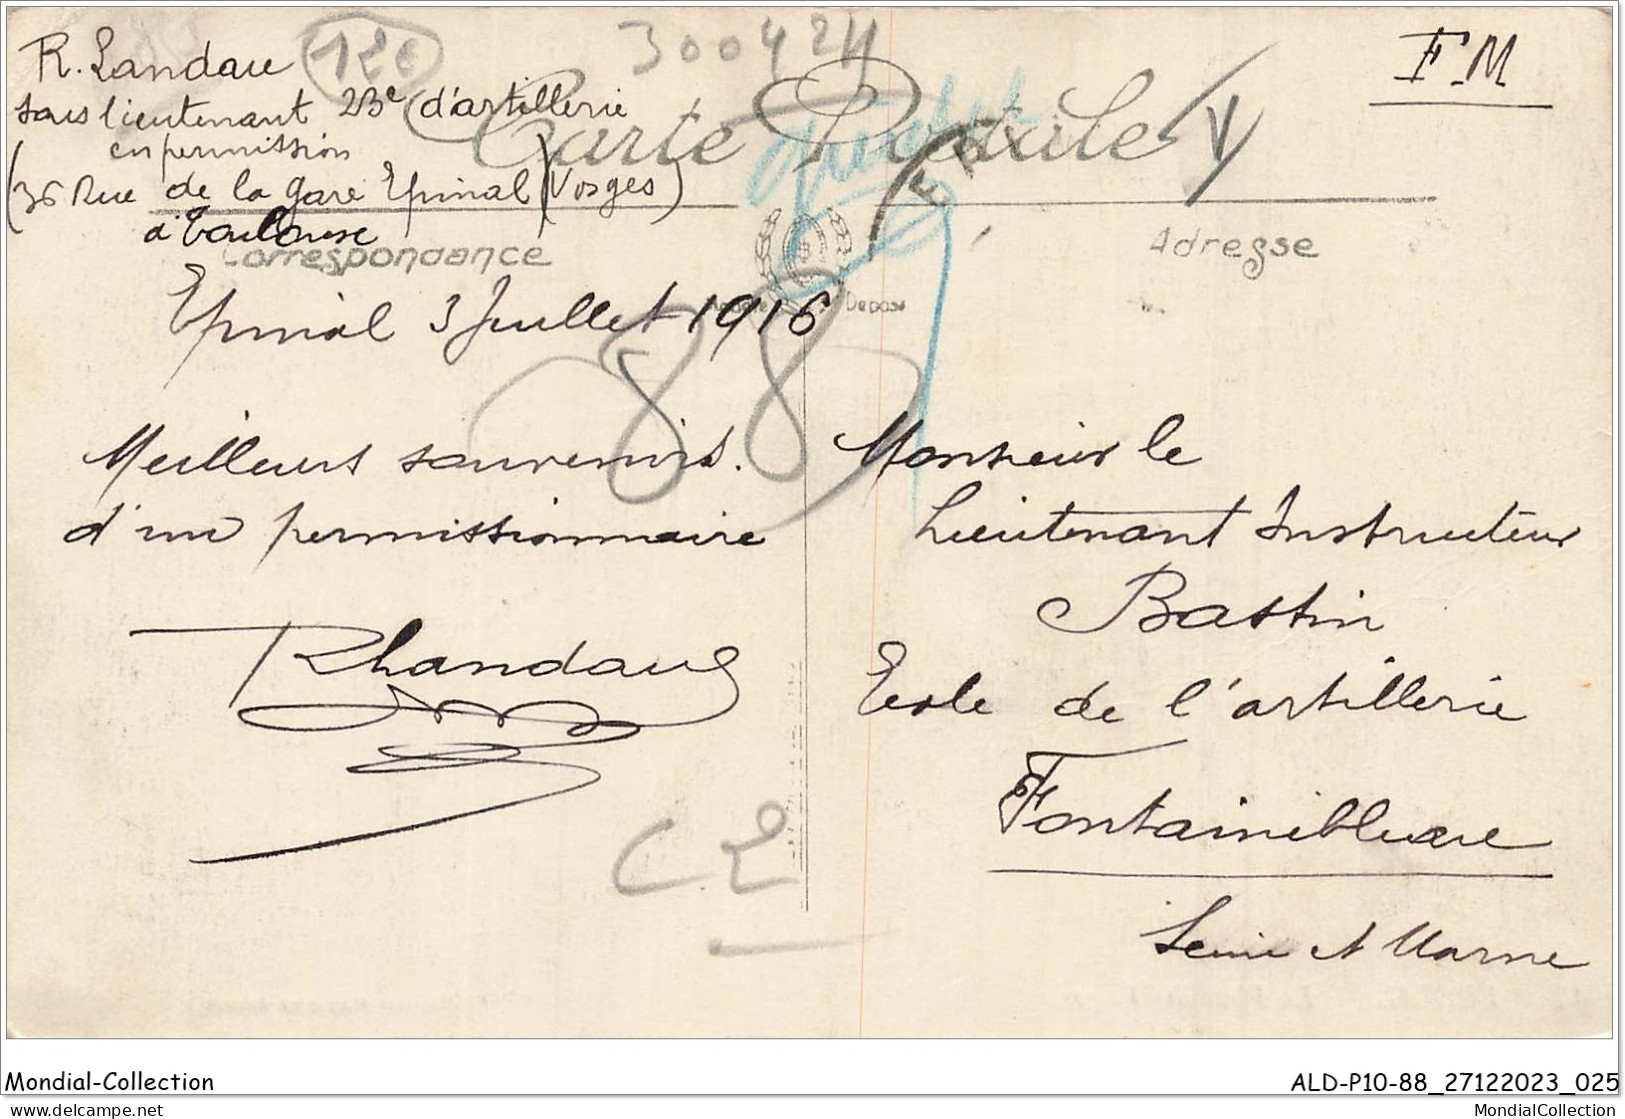 R. Landau
sous lieutenant 23e d'artillerie
en permission
(36 Rue de la gare Epinal (Vosges)
à Toulouse
120
300424
F.M
Carte Postale
Correspondance
Adresse
Modèle Déposé
Epinal 3 Juillet 1916
88
Meilleurs souvenirs.
d'un permissionnaire
RLandau
Monsieur le
Lieutenant Instructeur
Bastin
Ecole de l'artillerie
Fontainebleau
Seine et Marne
C2
Mondial-Collection
ALD-P10-88_27122023_025
https://www.delcampe.net
MondialCollection